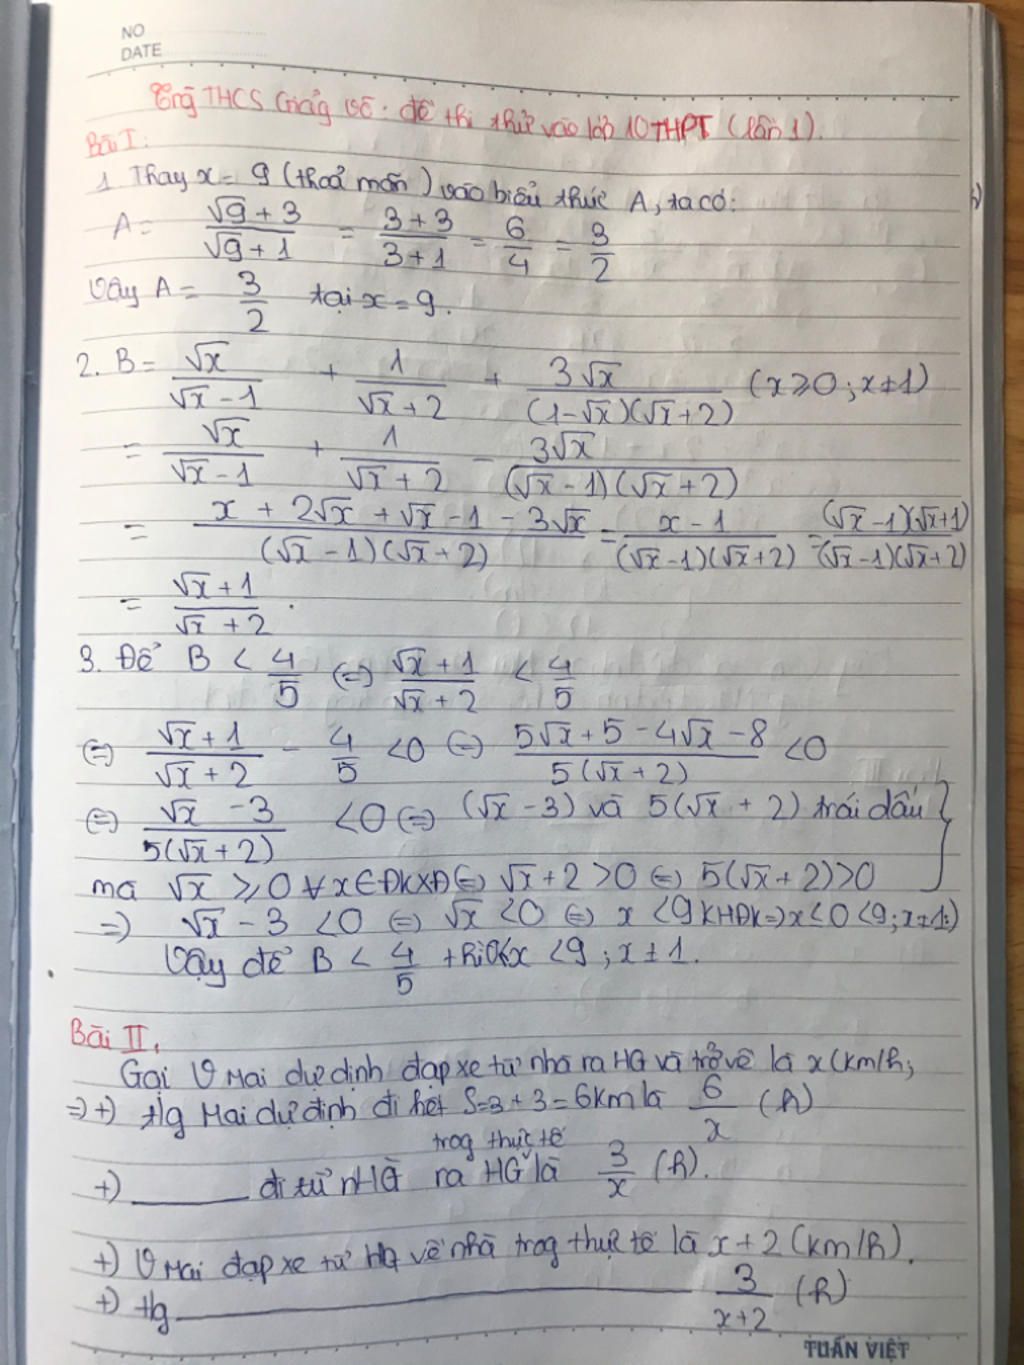 NO
DATE
Trg THCS Giảng Võ. đề thi thử vào lớp 10 THPT (lần 1).
Bài I:
1. Thay x = 9 (thoả mãn) vào biểu thức A, ta có:
A = (√9 + 3)/(√9 + 1) = (3 + 3)/(3 + 1) = 6/4 = 3/2
Vậy A = 3/2 tại x = 9.
2. B = √x/(√x - 1) + 1/(√x + 2) + 3√x/((1-√x)(√x + 2)) (x ≥ 0; x ≠ 1)
= √x/(√x - 1) + 1/(√x + 2) - 3√x/((√x - 1)(√x + 2))
= (x + 2√x + √x - 1 - 3√x)/((√x - 1)(√x + 2)) = (x - 1)/((√x - 1)(√x + 2)) = ((√x - 1)(√x + 1))/((√x - 1)(√x + 2))
= (√x + 1)/(√x + 2).
3. Để B < 4/5 (=) (√x + 1)/(√x + 2) < 4/5
(=) (√x + 1)/(√x + 2) - 4/5 < 0 (=) (5√x + 5 - 4√x - 8)/(5(√x + 2)) < 0
(=) (√x - 3)/(5(√x + 2)) < 0 (=) (√x - 3) và 5(√x + 2) trái dấu }
mà √x ≥ 0 ∀x ∈ ĐKXĐ (=) √x + 2 > 0 (=) 5(√x + 2) > 0
=) √x - 3 < 0 (=) √x < 0 (=) x < 9 KHĐK =) x ≤ 0 < 9; x ≠ 1
Vậy để B < 4/5 thì x < 9; x ≠ 1.
Bài II.
Gọi V Mai dự định đạp xe từ nhà ra HG và trở về là x (km/h;
=) +) tg Mai dự định đi hết S = 3 + 3 = 6km là 6/x (h)
trog thực tế
+) ____ đi từ nhà ra HG là 3/x (h).
+) V Mai đạp xe từ HG về nhà trog thực tế là x + 2 (km/h).
+) tg ____ 3/(x+2) (h)
TUẤN VIỆT